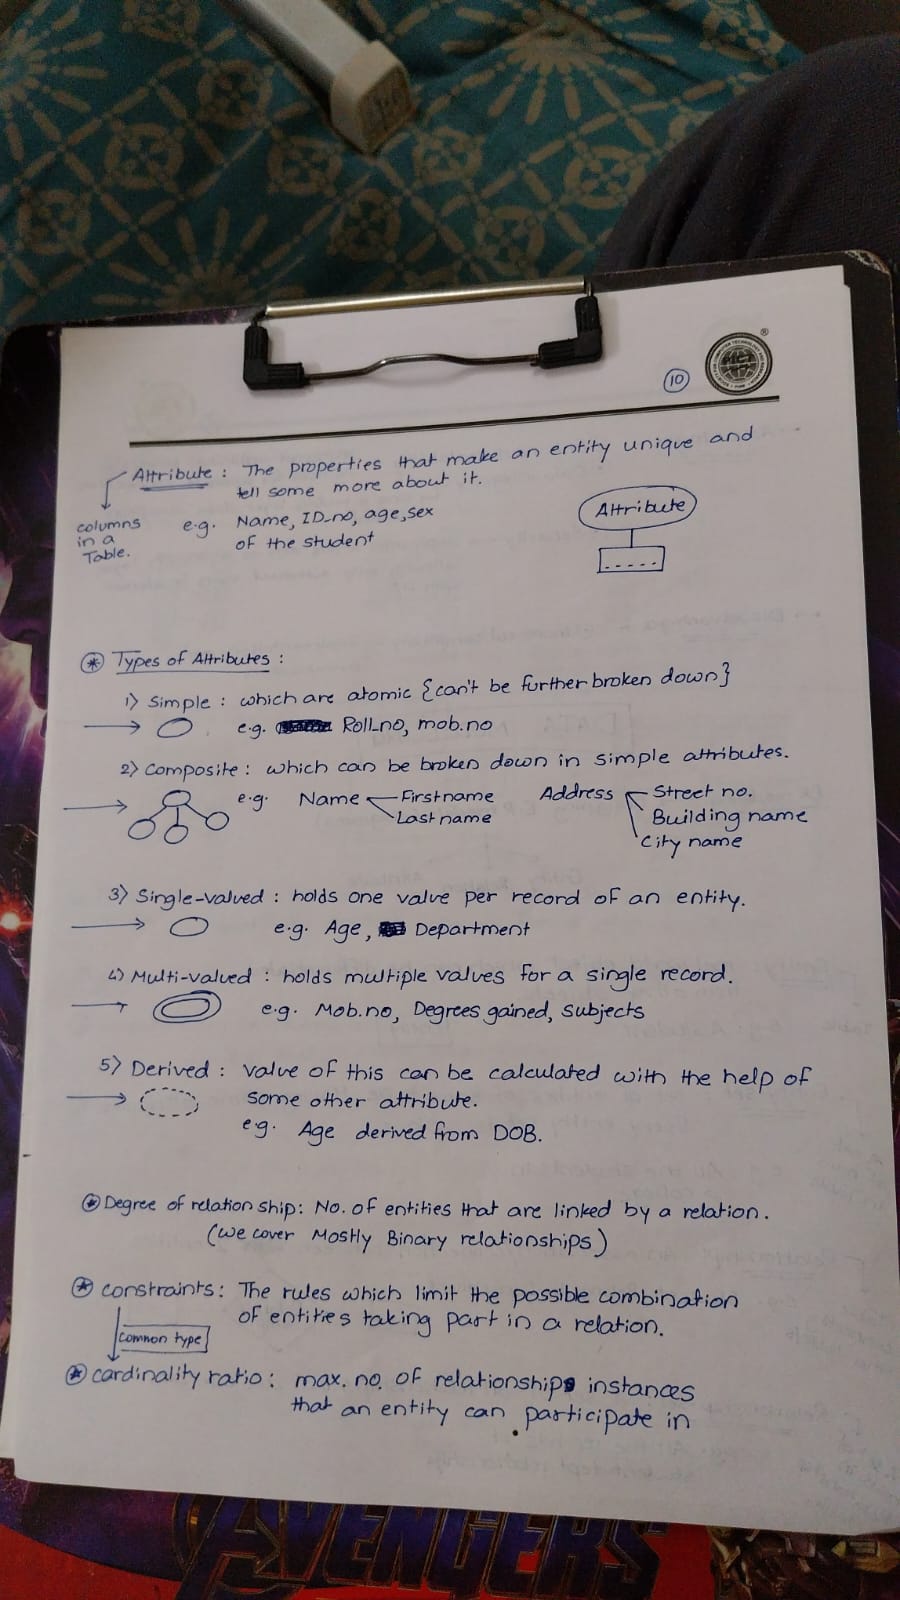 10
Attribute : The properties that make an entity unique and
tell some more about it.
columns
in a
Table.
e.g. Name, ID_no, age, sex
of the student
Attribute
.....
* Types of Attributes :
1) Simple : which are atomic {can't be further broken down}
e.g. Roll_no, mob.no
2) Composite : which can be broken down in simple attributes.
e.g. Name Firstname Address Street no.
Last name Building name
City name
3) Single-valued : holds one value per record of an entity.
e.g. Age, Department
4) Multi-valued : holds multiple values for a single record.
e.g. Mob.no, Degrees gained, subjects
5) Derived : value of this can be calculated with the help of
some other attribute.
e.g. Age derived from DOB.
* Degree of relation ship: No. of entities that are linked by a relation.
(we cover Mostly Binary relationships)
* constraints: The rules which limit the possible combination
of entities taking part in a relation.
common type
* cardinality ratio: max. no. of relationship instances
that an entity can participate in
AVENGERS